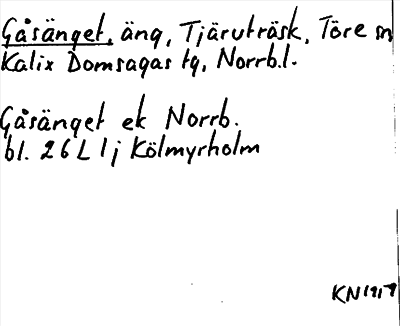 Gåsänget, äng, Tjäruträsk, Töre sn
Kalix Domsagas tg, Norrb.l.
Gåsänget ek Norrb.
bl. 26 L 1j Kölmyrholm